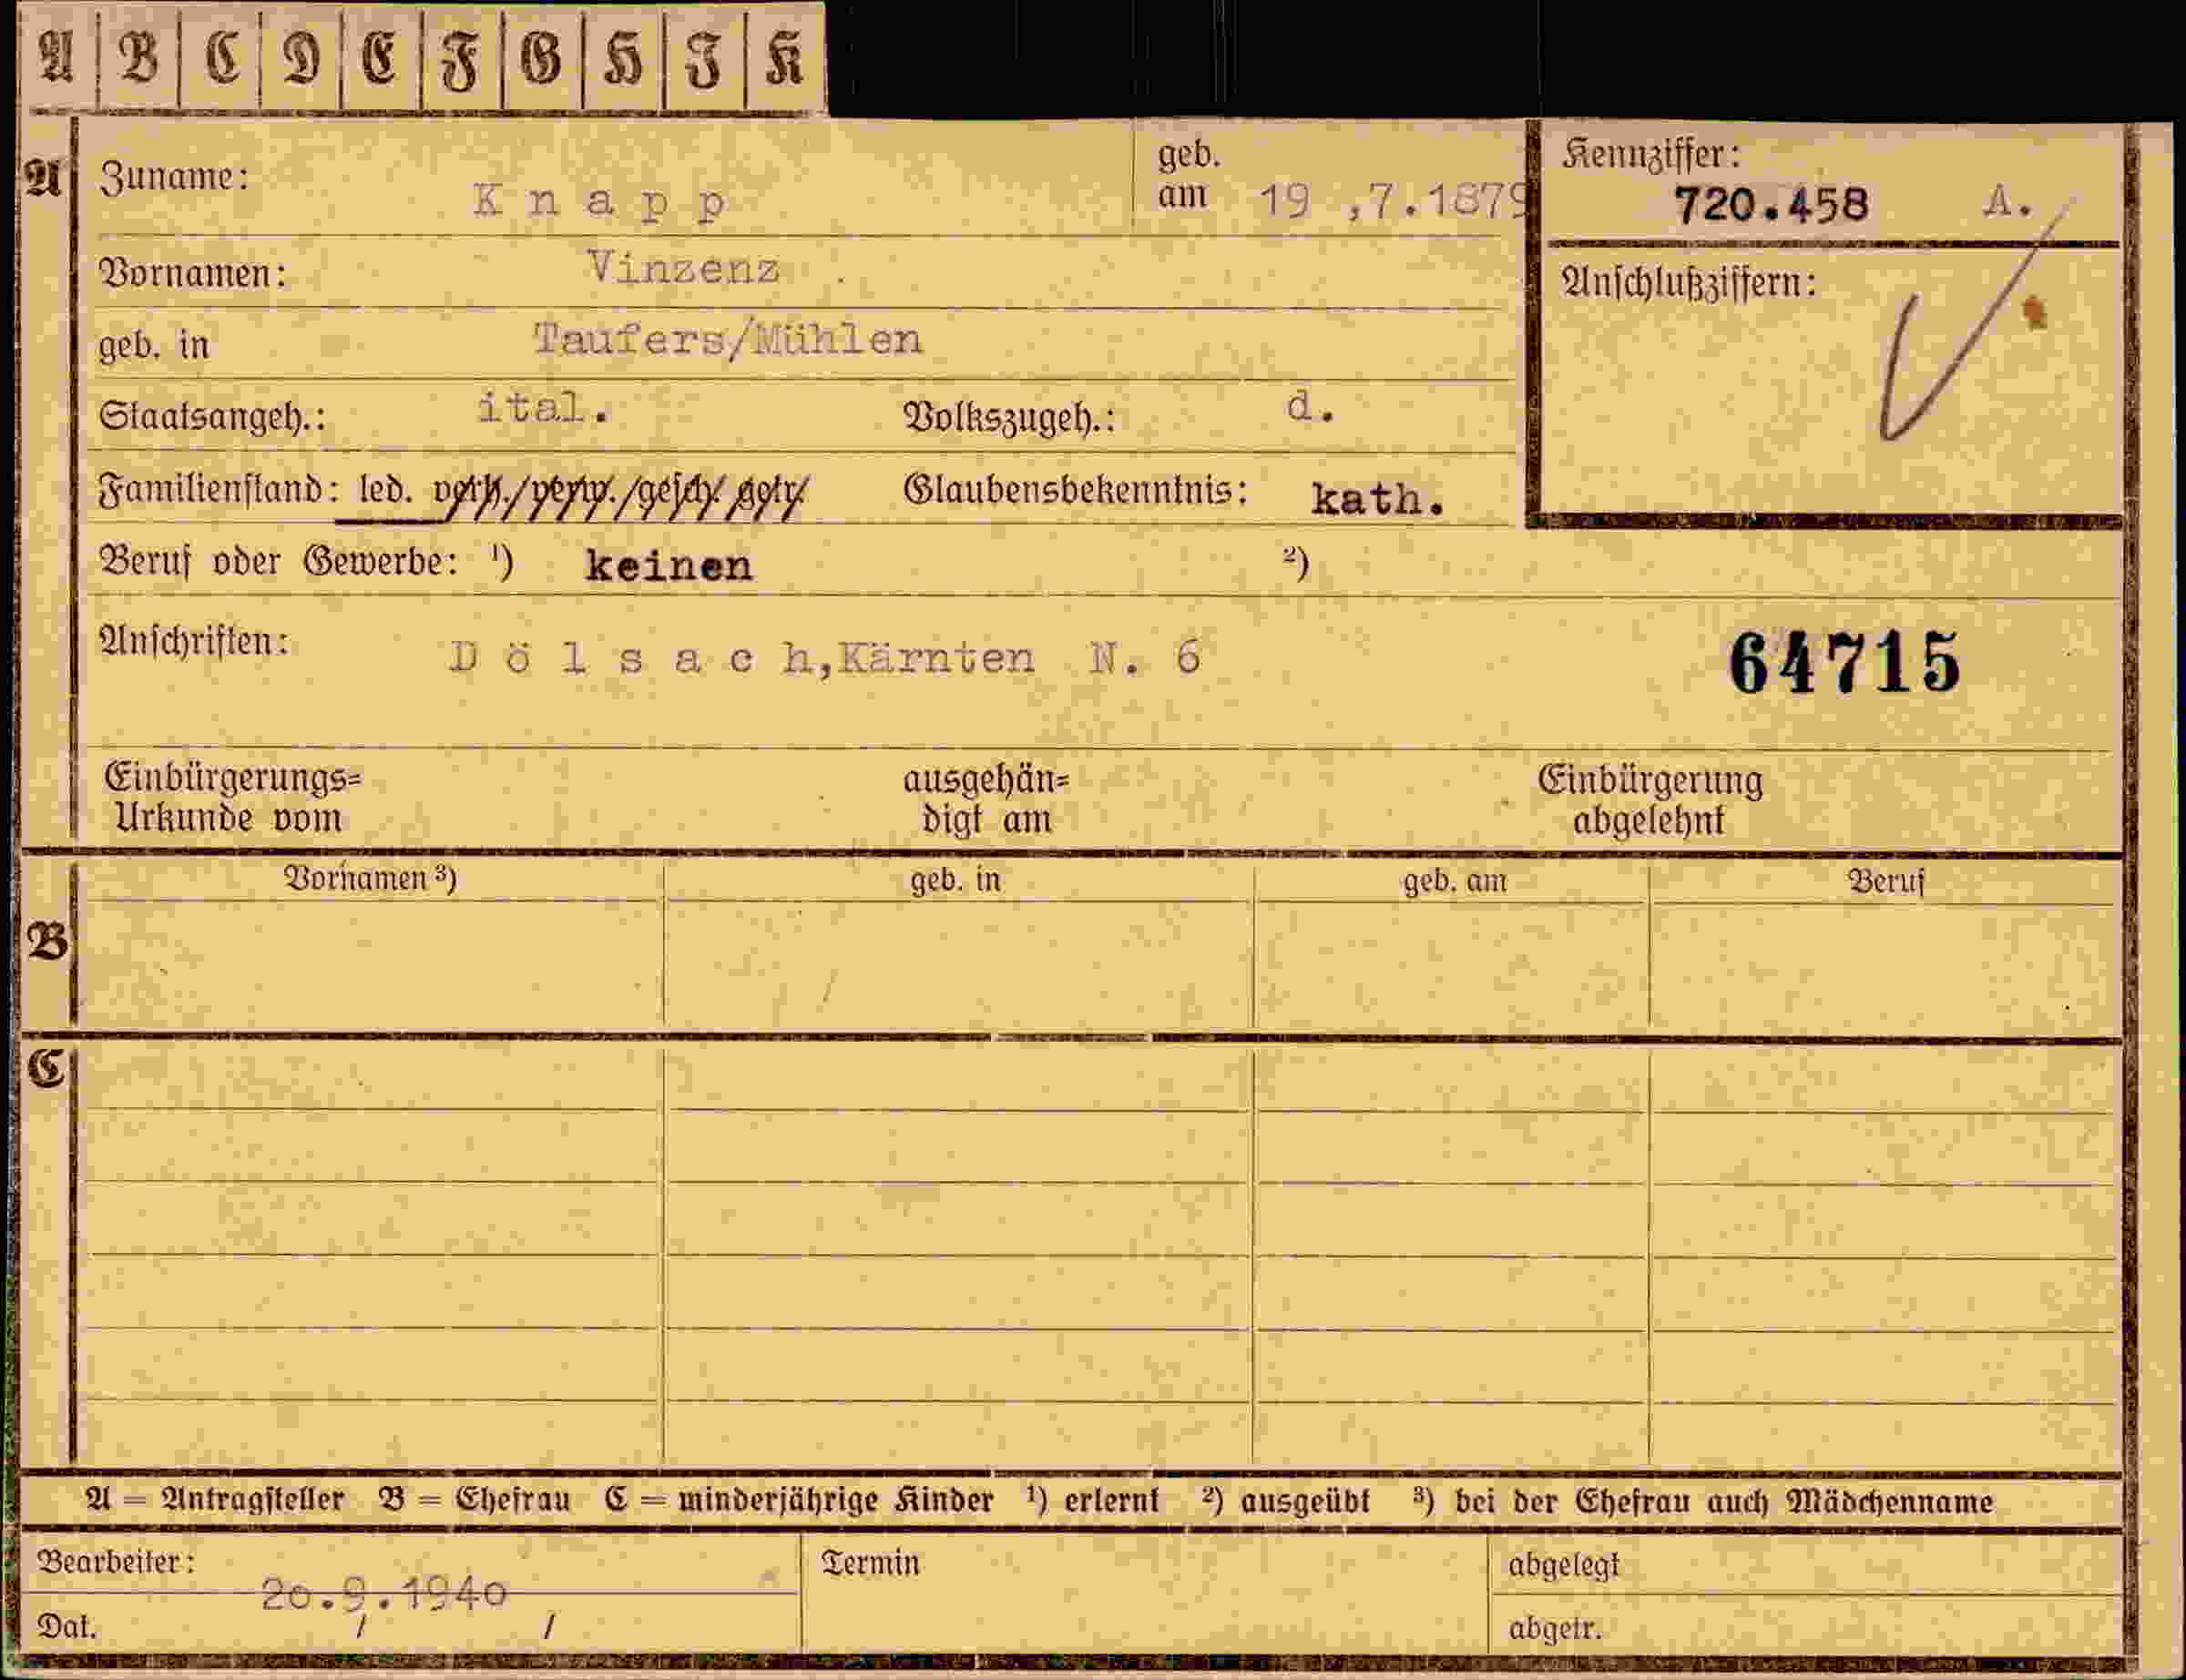 A B C D E F G H I K
A Zuname: Knapp geb. am 19 ,7.1879 Kennziffer: 720.458 A.
Vornamen: Vinzenz Anschlußziffern:
geb. in Taufers/Mühlen
Staatsangeh.: ital. Volkszugeh.: d.
Familienstand: led. verh./verw./gesch/ getr/ Glaubensbekenntnis: kath.
Beruf oder Gewerbe: ¹) keinen ²)
Anschriften: Dölsach,Kärnten N. 6 64715
Einbürgerungs= ausgehän= Einbürgerung
Urkunde vom digt am abgelehnt
Vornamen ³) geb. in geb. am Beruf
B
C
A = Antragsteller B = Ehefrau C = minderjährige Kinder ¹) erlernt ²) ausgeübt ³) bei der Ehefrau auch Mädchenname
Bearbeiter: Termin abgelegt
20.9.1940
Dat. / / abgetr.